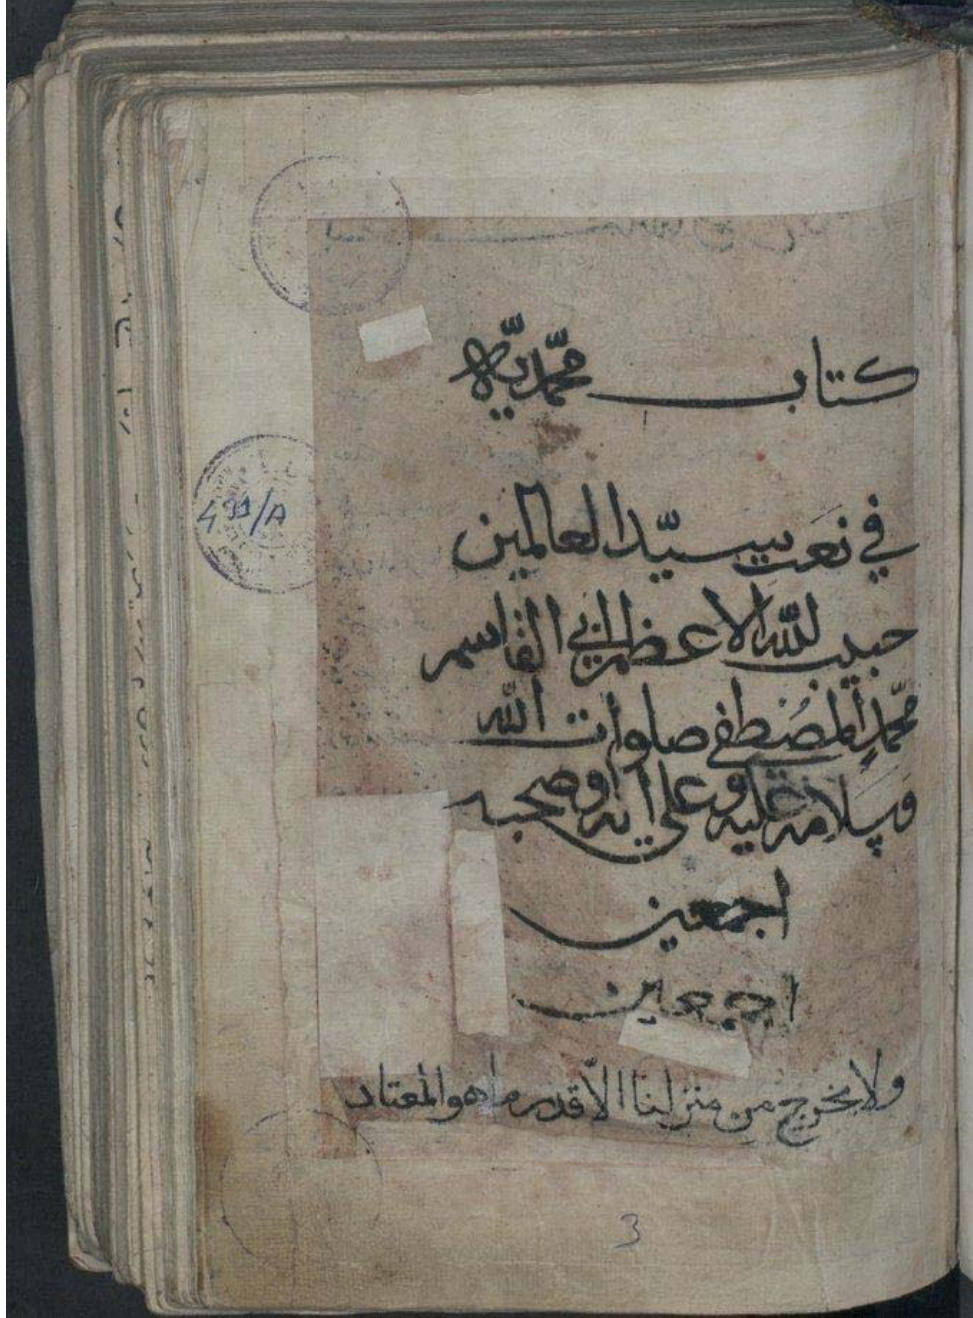 كتاب محمّديّه
في نعت سيّد العالمين
حبيب الله الاعظم ابي القاسم
محمّد المصطفى صلوات الله
وسلامه عليه وعلى آله وصحبه
اجمعين
اجمعين
ولا يخرج من منزلنا الّا قدر ما هو المعتاد
431/A
3